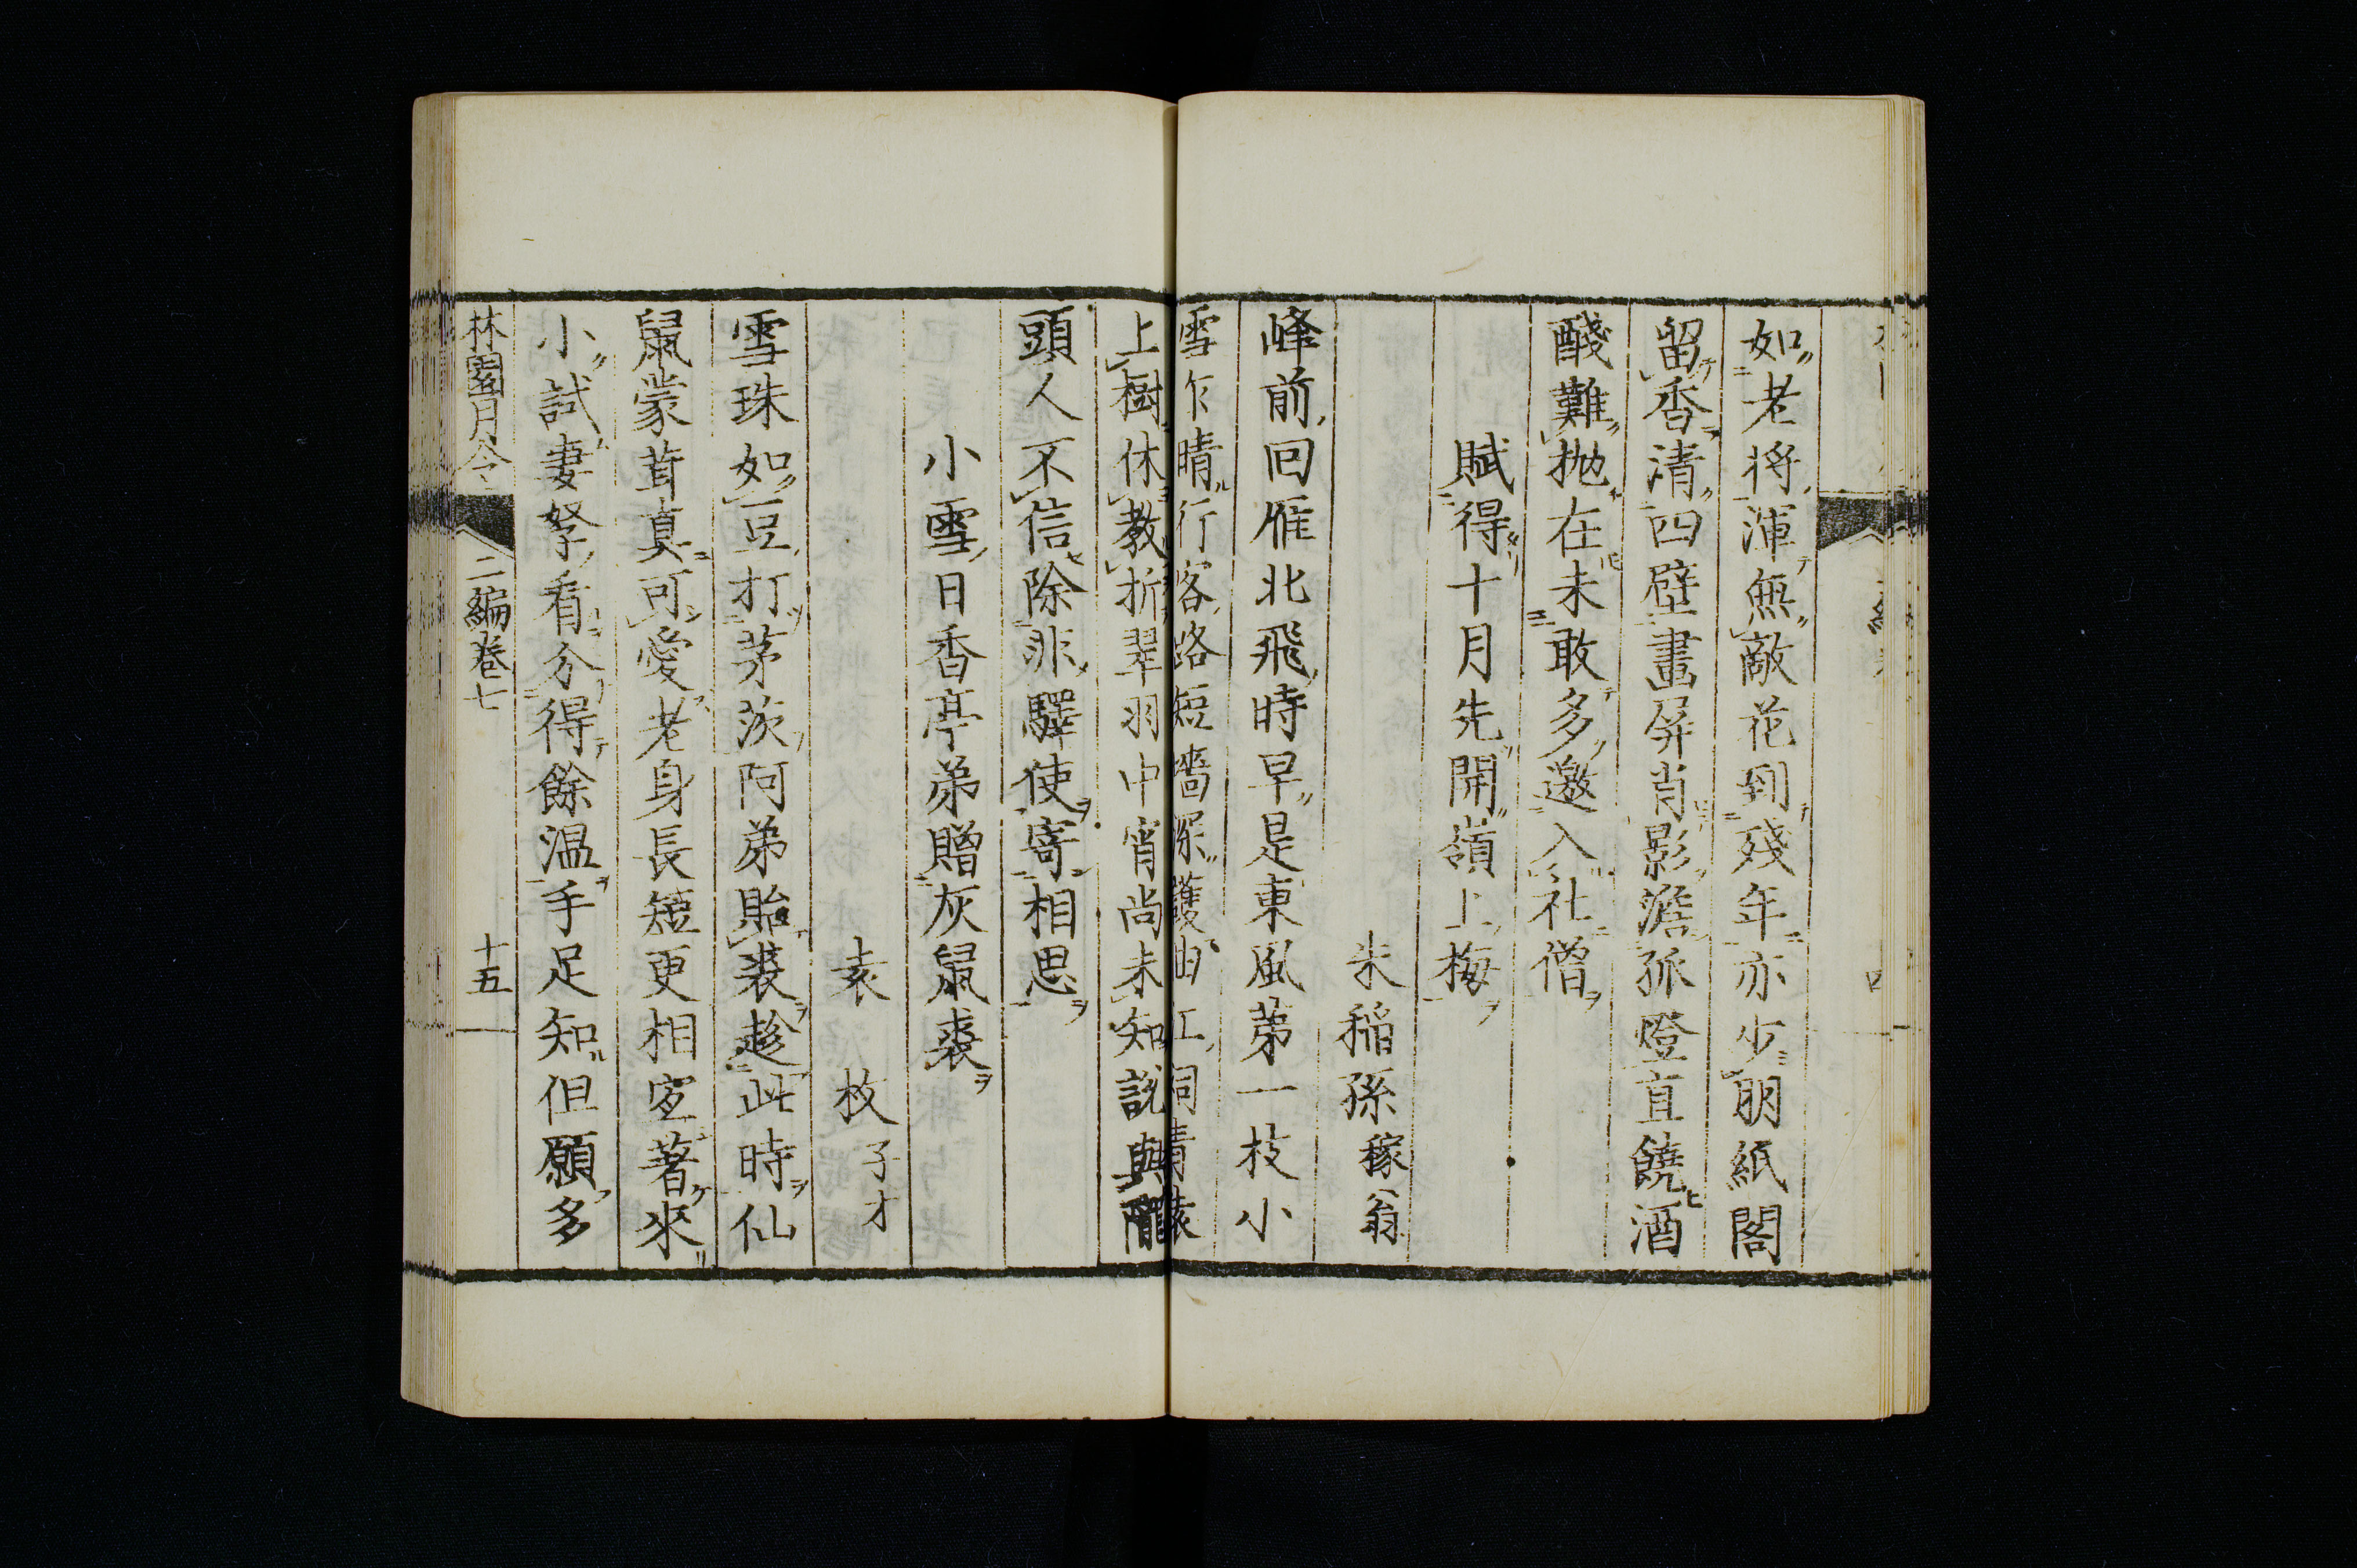 如老将渾無敵花到殘年亦少朋紙閣
留香清四壁畫屏肖影澹孤燈直饒酒
醆難抛在未敢多邀入社僧
賦得十月先開嶺上梅
朱稻孫稼翁
峰前回雁北飛時早是東風苐一枝小
雪乍晴行客路短墻深護曲江祠青猿
上樹休教折翠羽中宵尚未知説與隴
頭人不信除非驛使寄相思
小雪日香亭弟贈灰鼠裘
袁枚子才
雪珠如豆打茅茨阿弟貽裘趁此時仙
鼠蒙茸真可愛老身長短更相宜著來
小試妻孥看分得餘温手足知但願多
林園月令 二編卷七 十五